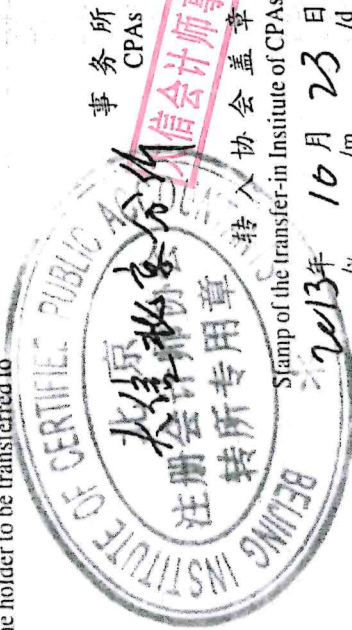 he holder to be transferred to
事务所
CPAs
信会计师事
BEIJING INSTITUTE OF CERTIFIE PUBLIC
注册会计师协会
转所专用章
转入协会盖章
Stamp of the transfer-in Institute of CPAs
2013年 10月 23日
/y /m /d